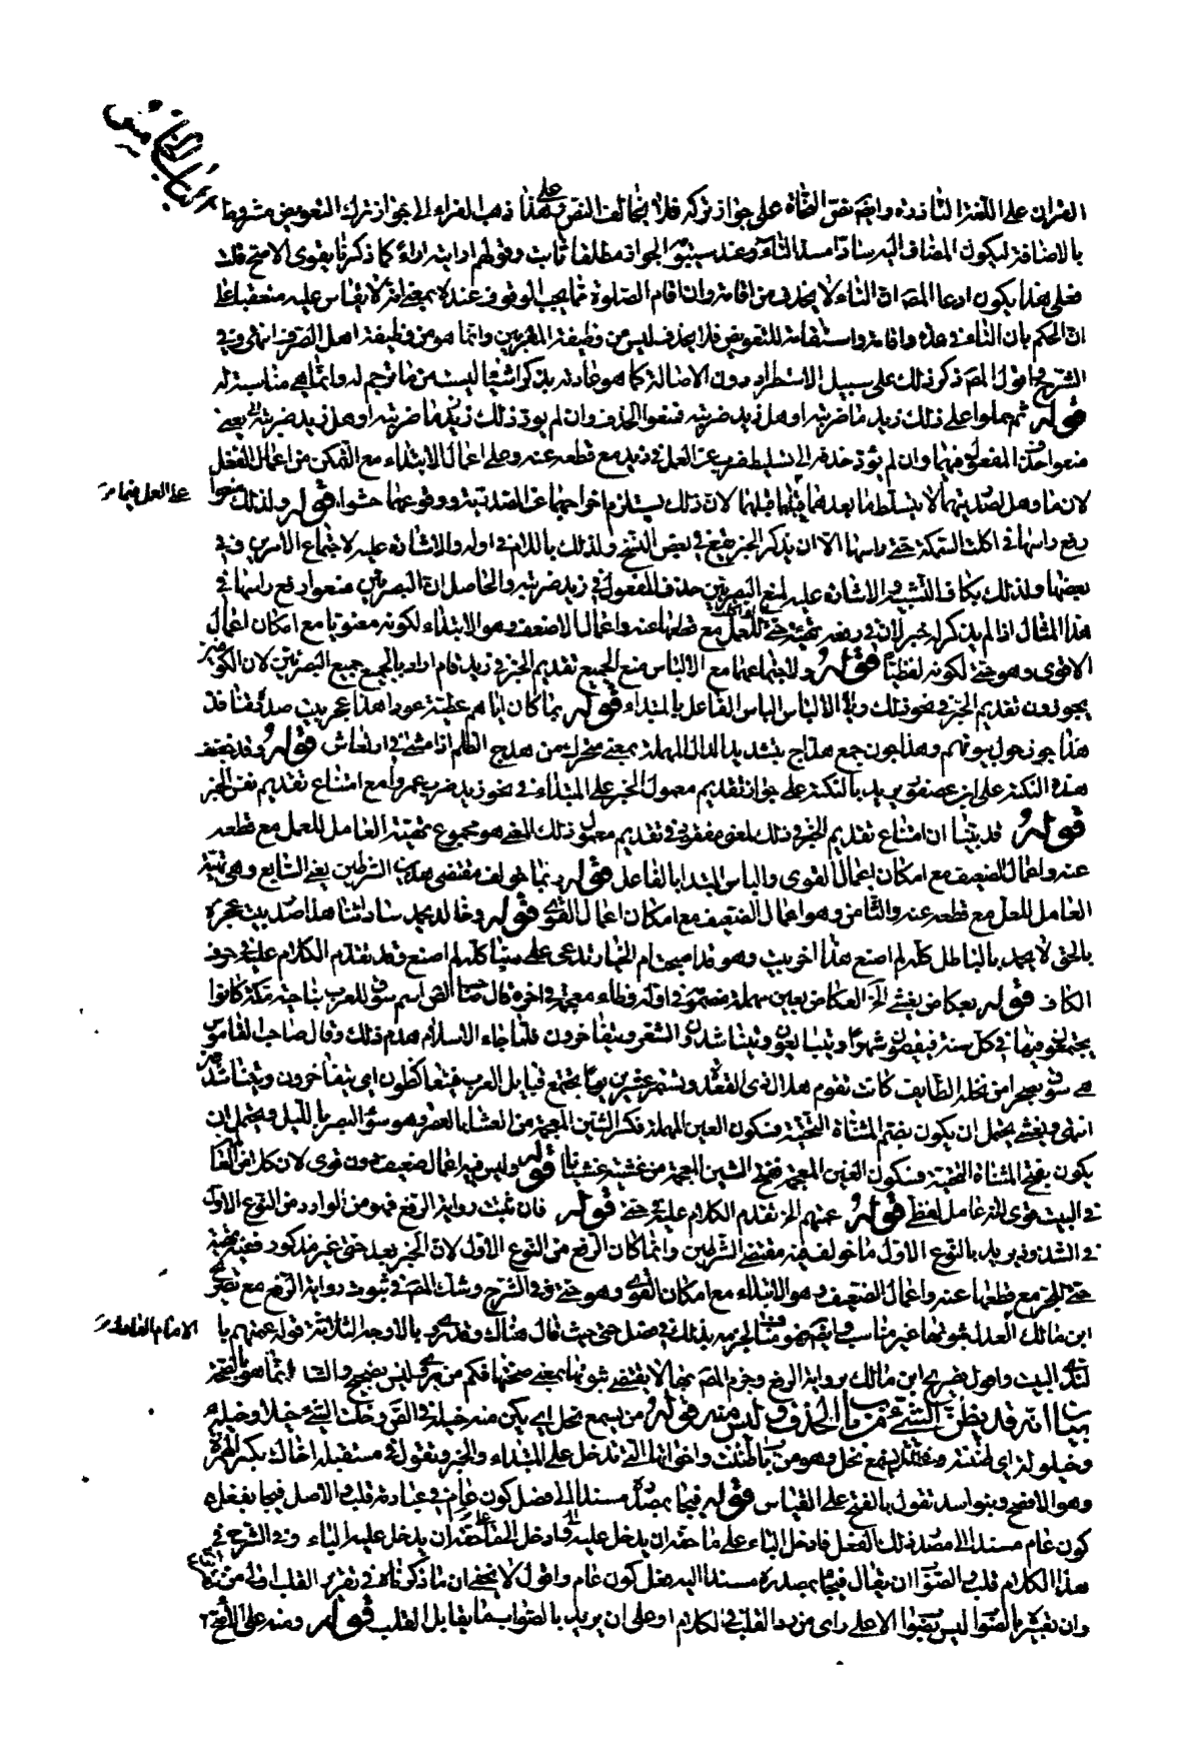 الكتاب الخامس
القرآن على اللغة الشاذة وايضا نص النحاة على جواز تركه فلا يخالف النص على هذا ذهب الفراء الى جواز ترك التعويض مشروطا
بالاضافة ليكون المضاف اليه سادا مسد التاء وعند سيبويه الجواز مطلقا ثابت وقولهم اراءته اراء كما ذكرنا يقوى الاصح قلت
فعلى هذا يكون ادعا المص ان التاء لا يحذف من اقامة وان اقام الصلوة مما يجب الوقوف عنده بمعنى انه لا يقاس عليه متعقبا على
ان الحكم بان التاء في عدة واقامة واستقامة للتعويض فلا يحذف ليس من وظيفة المعربين وانما هو من وظيفة اهل الصرف انتهى وفي
الشرح واقول المص ذكر ذلك على سبيل الاستطراد دون الاصالة كما هو عادته يذكر اشيا ليست من ما ترجم له وانما هي مناسبة له
قوله ثم حملوا على ذلك زيد ما ضربته او هل زيد ضربته فمنعوا الحذف وان لم يؤد ذلك زيد ما ضربته او هل زيد ضربته الى يعنى
منعوا حذف المفعول فيهما وان لم يؤد حذفه الى تسليط ضرب على العمل في زيد مع قطعه عنه وعلى اعمال الابتداء مع التمكن من اعمال الفعل
لان ما وهل لصدريتهما لا يتسلط ما بعدهما على ما قبلهما لان ذلك يستلزم اخراجهما عن الصدرية ووقوعهما حشوا قوله ولذلك منعوا
على العمل فيما مر
رفع راسها في اكلت السمكة حتى راسها الا ان يذكر الخبر وقع في بعض النسخ ولذلك باللام في اوله والاشارة عليه لاجتماع الامرين وفي
بعضها وكذلك بكاف التشبيه والاشارة عليه لمنع البصريين حذف المفعول في زيد ضربته والحاصل ان البصريين منعوا رفع راسها في
هذا المثال اذا لم يذكر له خبر لان في رفعه تهيئة حتى للعمل مع قطعها عنه واعمال الاضعف وهو الابتداء لكونه معنويا مع امكان اعمال
الاقوى وهو حتى لكونه لفظيا قوله ولاجتماعهما مع الالباس منع الجميع تقديم الخبر في زيد قام اراد بالجميع جميع البصريين لان الكوفيين
يجوزون تقديم الخبر في نحو ذلك والالباس الباس الفاعل بالمبتداء قوله بما كان اياهم عطية عودا هذا عجز بيت صدره قنافذ
هداجون حول بيوتهم وهداجون جمع هداج بتشديد الدال المهملة بمعنى متحرك من هدج الظليم اذا مشى في ارتعاش قوله وقد خفيت
هذه النكتة على ابن عصفور يريد بالنكتة على جواز تقديم معمول الخبر على المبتداء في نحو زيد ضرب عمروا مع امتناع تقديم نفس الخبر
قوله قد بينا ان امتناع تقديم الخبر في ذلك لمعنى مفقود في تقديم معموله وذلك المعنى هو مجموع تهيئة العامل للعمل مع قطعه
عنه واعمال الضعيف مع امكان اعمال القوى والباس المبتدا بالفاعل قوله وبما خولف مقتضى هذين الشرطين يعنى السابع وهو تهيئة
العامل للعمل مع قطعه عنه والثامن وهو اعمال الضعيف مع امكان اعمال القوى قوله وخالد يحمد ساداتنا هذا صدر بيت عجزه
بالحق لا يحمد بالباطل كله لم اصنع هذا آخر بيت وهو قد اصبحت ام الخيار تدعى على ذنبا كله لم اصنع وقد تقدم الكلام عليه في حرف
الكاف قوله بعكاظ يعشى الخ العكاظ بعين مهملة مضمومة في اوله وظاء معجمة في اخره قال اسم سوق للعرب بناحية مكة كانوا
يجتمعون فيها في كل سنة فيقيمون شهرا ويتبايعون ويتناشدون الشعر ويتفاخرون فلما جاء الاسلام هدم ذلك وقال صاحب القاموس
هي سوق بصحراء بين نخلة والطايف كانت تقوم هلال ذى القعدة وتستمر عشرين يوما يجتمع قبايل العرب فيتعاكظون اى يتفاخرون ويتناشدون
انتهى ويعشى يحتمل ان يكون بضم المثناة التحتية وسكون العين المهملة وكسر الشين المعجمة من العشا بالقصر وهو سوء البصر بالليل ويحتمل ان
يكون بفتح المثناة التحتية وسكون الغين المعجمة وفتح الشين المعجمة من غشيه غشيانا قوله وليس فيه اعمال ضعيف دون قوى لان كلا من الفعلين
في البيت قوى لانه عامل لفظي قوله عمتهم الخ تقدم الكلام عليه في حتى قوله فان ثبتت رواية الرفع فهو من الوارد من النوع الاول
في الشذوذ يريد بالنوع الاول ما خولف فيه مقتضى الشرطين وانما كان الرفع من النوع الاول لان الخبر بعد حتى غير مذكور ففيه تهيئة
حتى للجر مع قطعها عنه واعمال الضعيف وهو الابتداء مع امكان القوى وهو حتى وفي الشرح وشك المص في ثبوت رواية الرفع مع تصريح
ابن مالك العدل بثبوتها غير مناسب وايضا فهو الجزم به بذلك في فصل حتى حيث قال هناك وقد روى بالاوجه الثلاثة قوله عمتهم بالندى
الامام العلامة مر
البيت واقول تصريح ابن مالك برواية الرفع وجزم المص بها لا يقتضى ثبوتها بمعنى صحتها فكم من مروى ليس بصحيح والشك انما هو في الصحة
بيان انه قد يظن الشئ من باب الحذف وليس منه قوله من يسمع يخل اى يكن منه خيلة وفي ق وخلت الشئ خيلا وخيلة
وخيلولة اى ظننته وفي المثل من يسمع يخل وهو من باب ظننت واخواتها التى تدخل على المبتداء والخبر وتقول في مستقبله اخال بكسر الهمزة
وهو الافصح وبنو اسد تقول بالفتح على القياس قوله فيجاء بمصدره مسندا الى فعل كون عام في عبارته قلب والاصل فيجاء بفعل
كون عام مسندا الى مصدر ذلك الفعل فادخل الباء على ما حقه ان يدخل عليه الى وادخل الى على ما حقه ان يدخل عليه الباء وفي الشرح في
هذا الكلام قلب والصواب ان يقال فيجاء بمصدره مسندا اليه فعل كون عام واقول لا يخفى ان ما ذكرناه في تقرير القلب اولى من هذا
وان تعبيره بالصواب ليس بصواب الا على راى من رد القلب في الكلام او على ان يريد بالصواب ما يقابل القلب قوله ومنه على الاصح